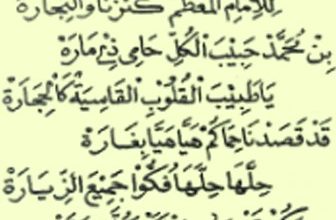 للإمام المعظم كنزنا والتجارة
بن محمد حبيب الكل حامى ذمارة
يا طبيب القلوب القاسية كالحجارة
قد قصدنا حماكم هيا هيا بغارة
حلها حلها فكوا جميع الزيارة